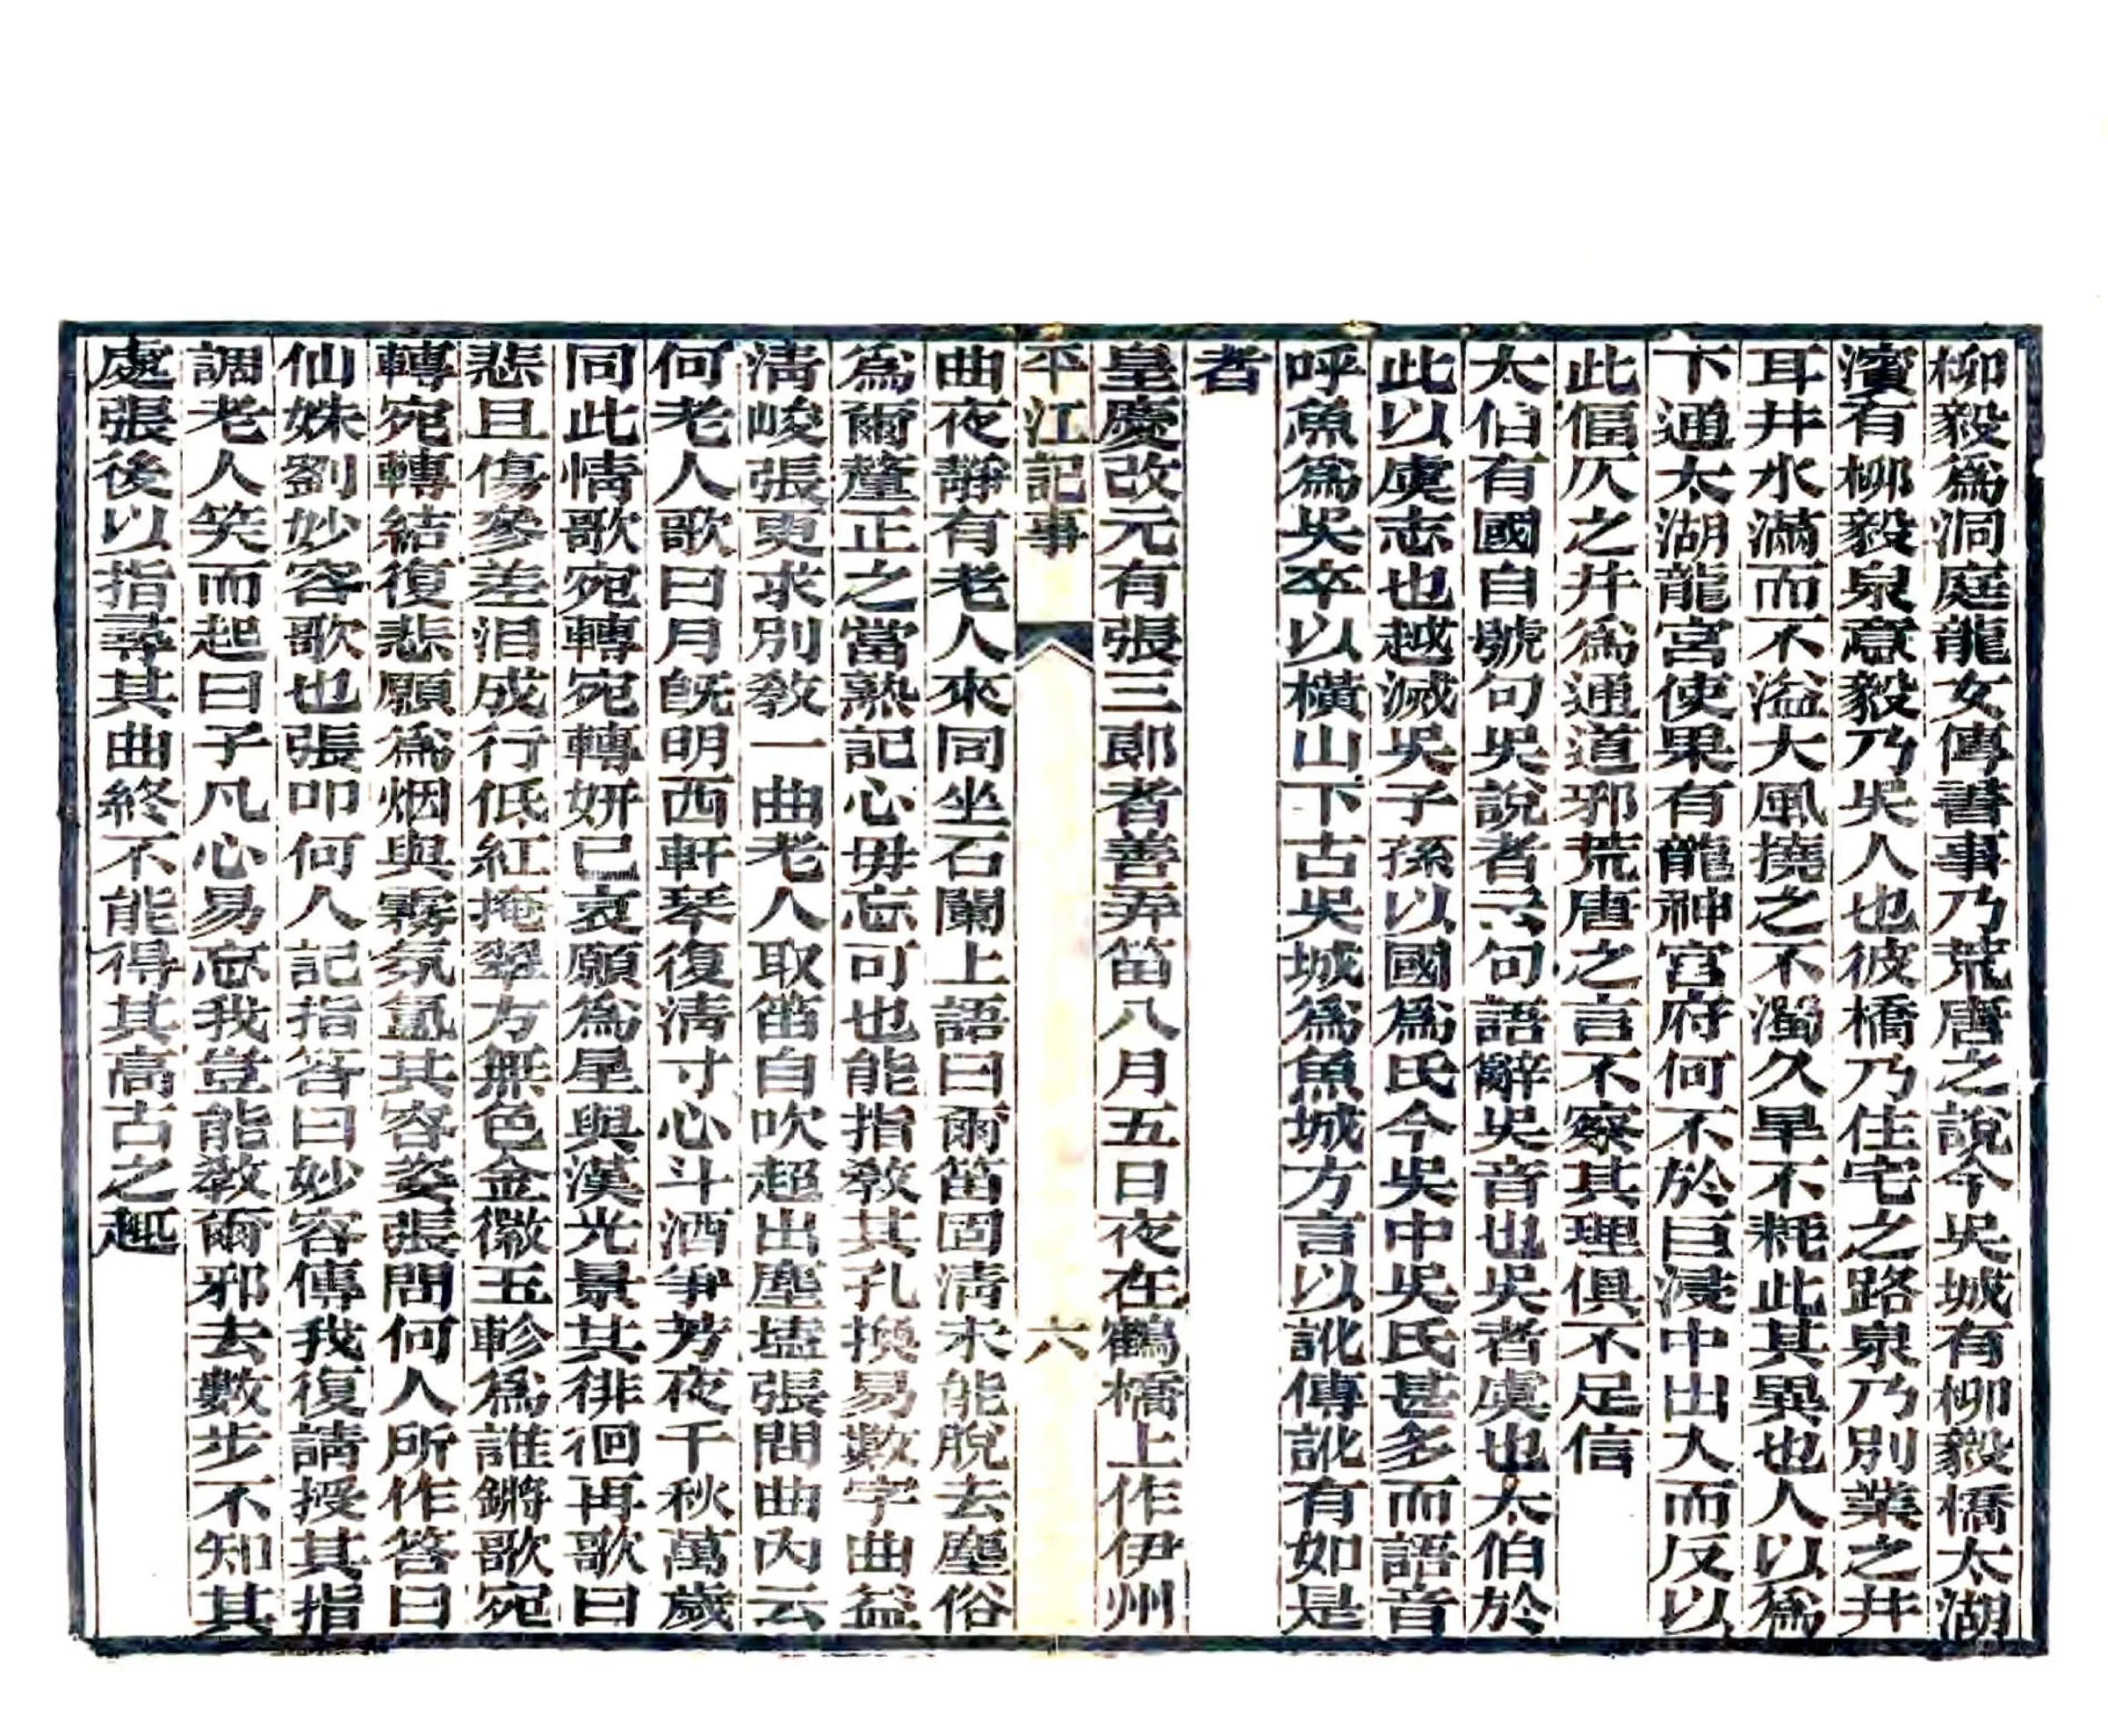 柳毅爲洞庭龍女傳書事乃荒唐之說今吳城有柳毅橋太湖
濱有柳毅泉意毅乃吳人也彼橋乃住宅之路泉乃別業之井
耳井水滿而不溢大風撓之不濁久旱不耗此其異也人以爲
下通太湖龍宮使果有龍神宮府何不於巨浸中出入而反以
此偪仄之井爲通道邪荒唐之言不察其理俱不足信
太伯有國自號句吳說者云句語辭吳音也吳者虞也太伯於
此以虞志也越滅吳子孫以國爲氏今吳中吳氏甚多而語音
呼魚爲吳卒以橫山下古吳城爲魚城方言以訛傳訛有如是
者
皇慶改元有張三郎者善弄笛八月五日夜在鶴橋上作伊州
平江記事 六
曲夜靜有老人來同坐石闌上語曰爾笛固淸未能脫去塵俗
爲爾釐正之當熟記心毋忘可也能指敎其孔換易數字曲益
淸峻張更求別敎一曲老人取笛自吹超出塵壒張問曲內云
何老人歌曰月旣明西軒琴復淸寸心斗酒爭芳夜千秋萬歲
同此情歌宛轉宛轉妍已哀願爲星與漢光景其徘徊再歌曰
悲且傷參差淚成行低紅掩翠方無色金徽玉軫爲誰鏘歌宛
轉宛轉結復悲願爲烟與霧氛氳其容姿張問何人所作答曰
仙姝劉妙容歌也張叩何人記指答曰妙容傳我復請授其指
調老人笑而起曰子凡心易忘我豈能敎爾邪去數步不知其
處張後以指尋其曲終不能得其高古之趣